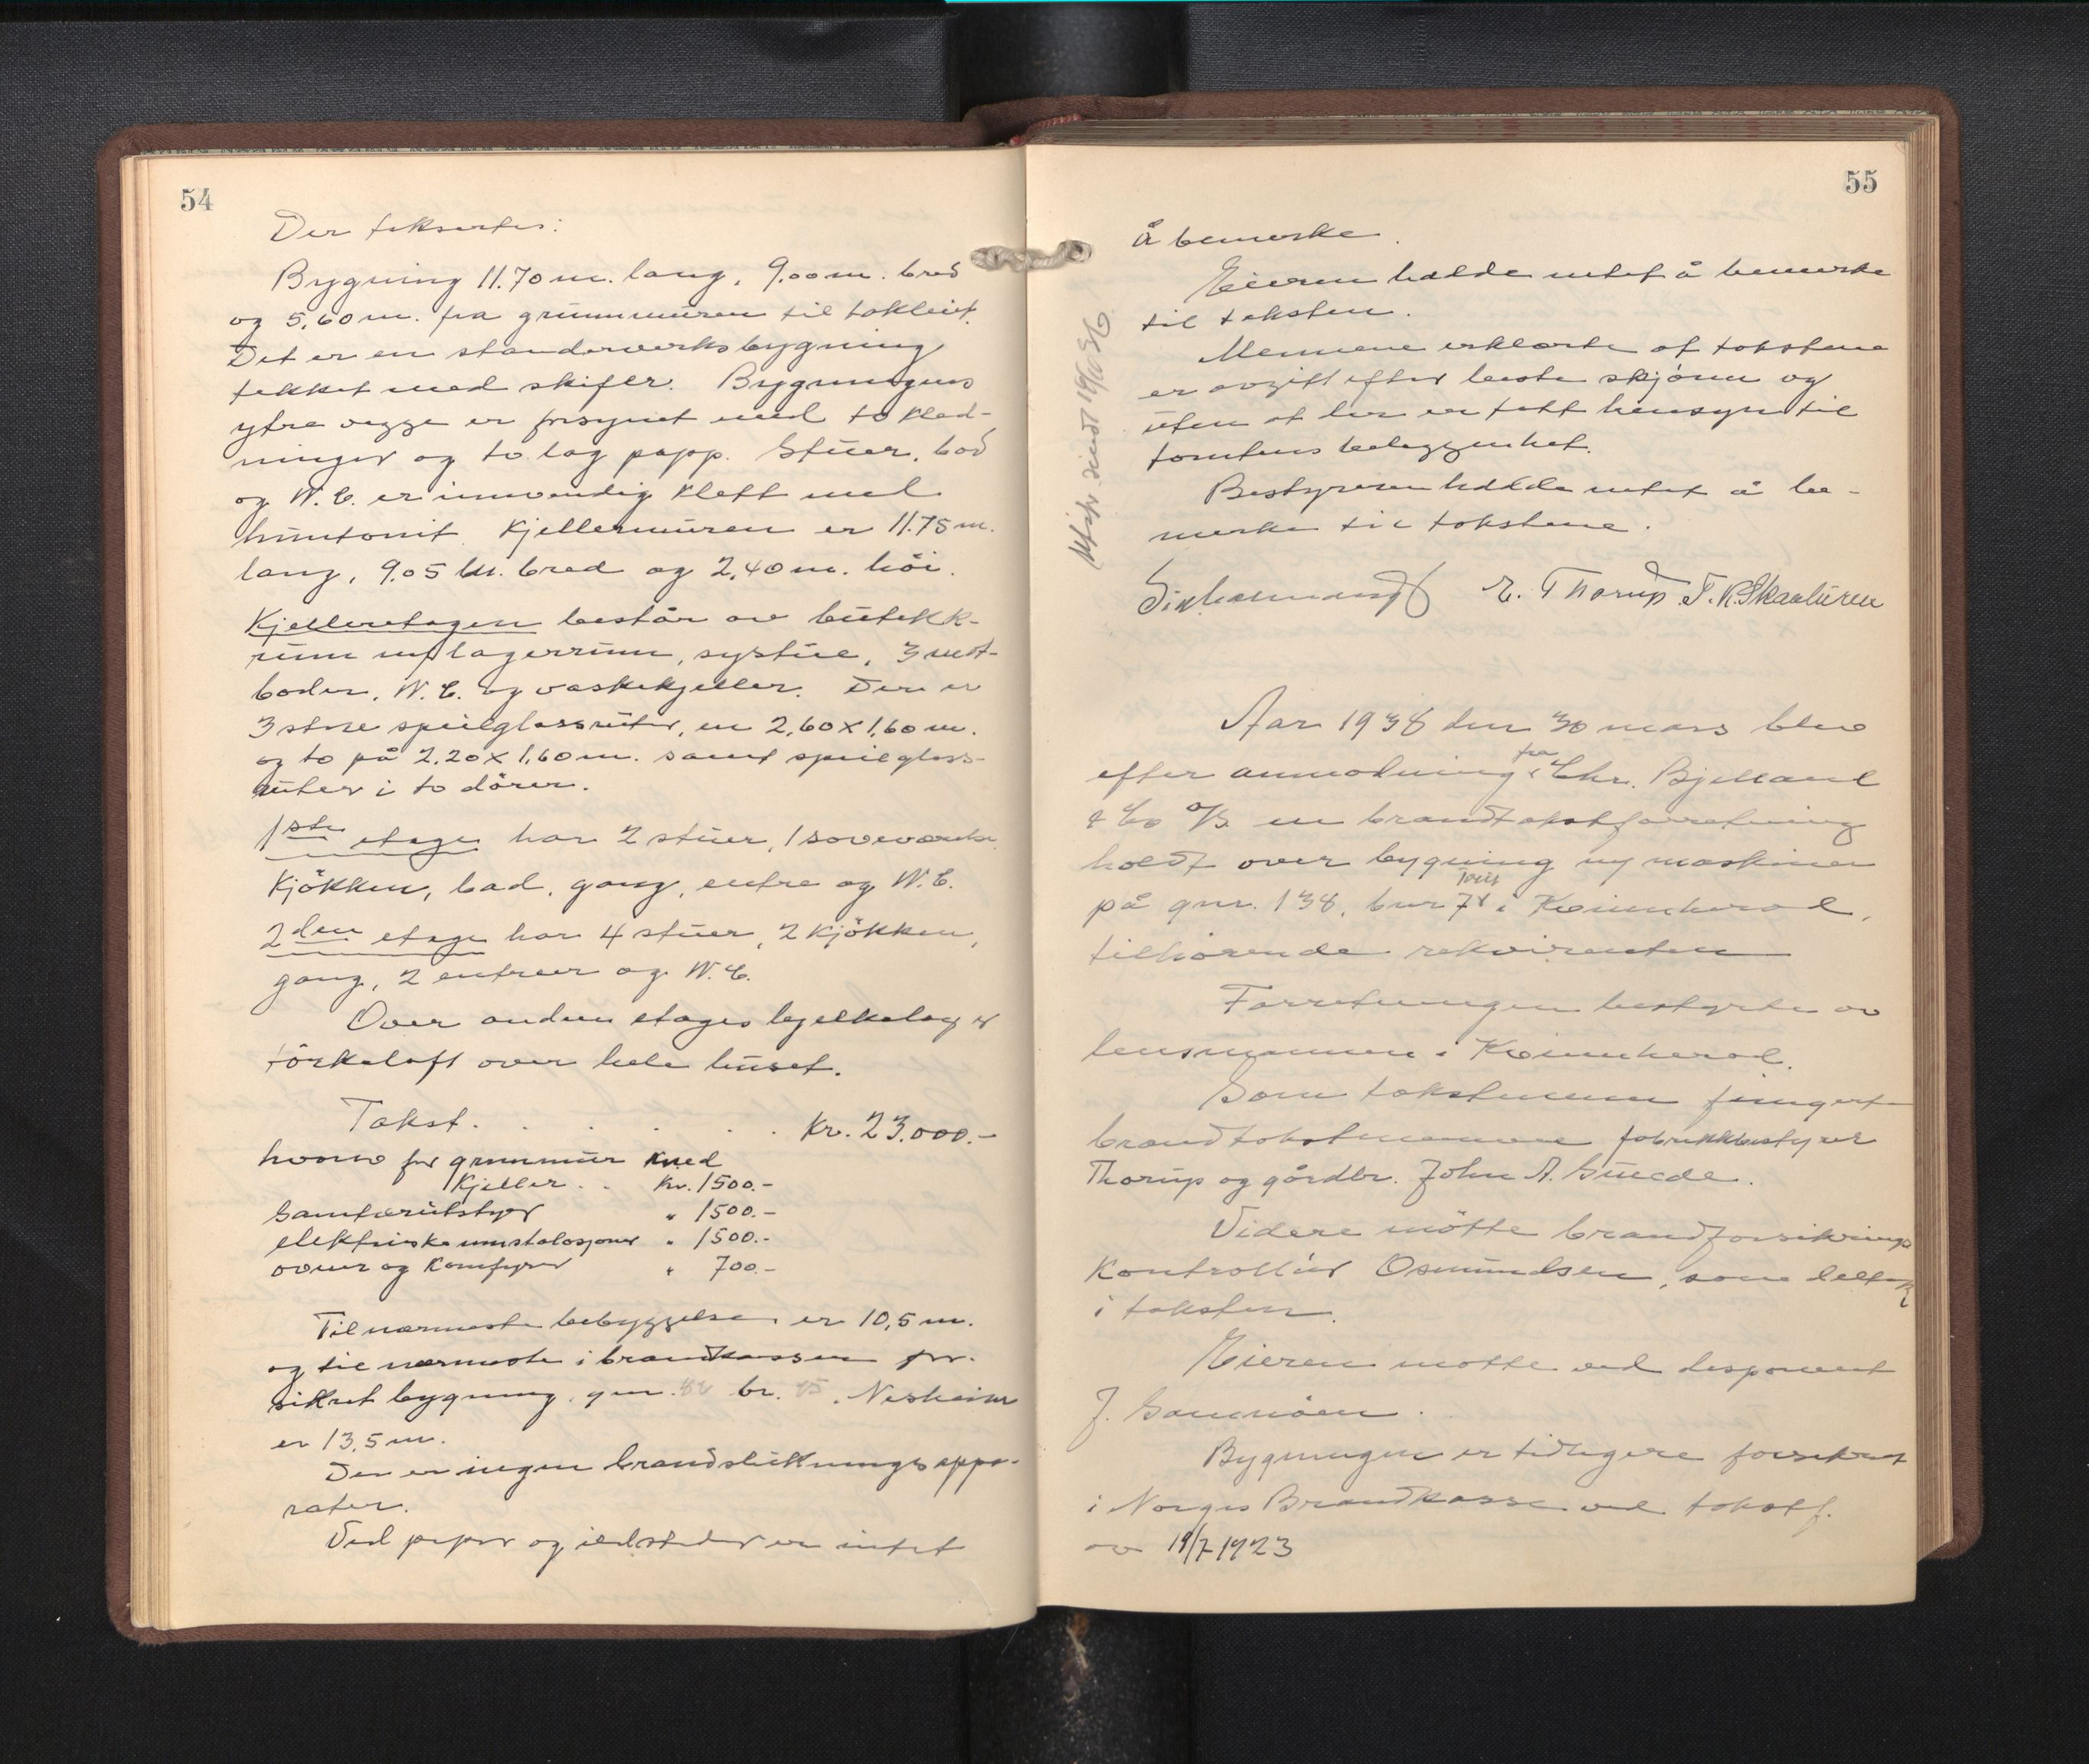 54
Der takserte:
Bygning 11.70 m. lang, 9.00 m. bred
og 5,60 m. fra grunnmuren til takleist.
Det er en standerverksbygning
tekket med skifer. Bygningens
ytre vegge er forsynet med to kled-
ninger og to lag papp. Stuer, bad
og W.C. er innvendig klett med
huntonit. Kjellermuren er 11.75 m.
lang, 9.05 m. bred og 2,40 m. höi.
Kjelleretagen består av butikk-
rum m/ lagerrum, systue, 3 mat-
boder, W.C. og vaskekjeller. Der er
3 store speilglassruter, en 2,60 x 1,60 m.
og to på 2.20 x 1,60 m. samt speilglass-
ruter i to dörer.
1ste etage har 2 stuer, 1 soveværelse
Kjökken, bad, gang, entre og W.C.
2den etage har 4 stuer, 2 kjökken,
gang, 2 entreer og W.C.
Over anden etages bjelkelag er
törkeloft over hele huset.
Takst. . . . . . Kr. 23.000.-
hvorav for grunnmur med
Kjeller . . Kr. 1500.-
Sanitærutstyr " 1500.-
elektriske installasjoner " 1500.-
ovner og Komfyrer " 700.-
Til nærmeste bebyggelse er 10,5 m.
og til nærmeste i brandkassen for-
sikret bygning, gnr. br. 15. Nesheim
er 13,5 m.
Der er ingen brandslukningsappa-
rater.
Ved piper og ildsteder er intet
55
å bemerke.
Eieren hadde intet å bemerke
til taksten.
Mennene erklærte at takstene
er avgitt efter beste skjönn og
uten at der er tatt hensyn til
tomtens beleggenhet.
Bestyreren hadde intet å be-
merke til takstene.
E. Thorup. T. K. Skaaluren
Aar 1938 den 30 mars blev
efter anmodning fra Chr. Bjelland
& Co A/S en brandtakstforretning
holdt over bygning og maskiner
på gnr. 138, bnr 7 i Kvinnherad,
tilhörende rekvirenten
Forretningen bestyrte av
lensmannen i Kvinnherad.
Som takstmenn fungerte
brandtakstmennene fabrikkbestyrer
Thorup og gårdbr. John A. Guddal.
Videre mötte brandforsikrings
Kontrollör Osmundsen, som deltok
i taksten.
Eieren mötte ved disponent
J. Sannöen.
Bygningen er tidligere forsikret
i Norges Brandkasse ved takstf.
av 19/7 1923